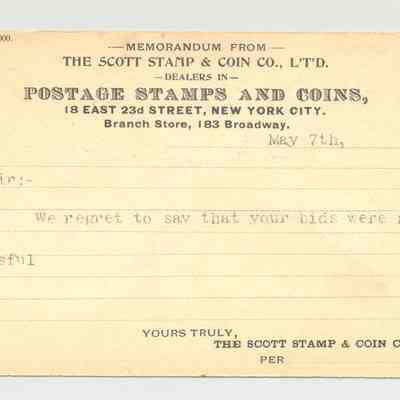 000.
—MEMORANDUM FROM—
THE SCOTT STAMP & COIN CO., L'T'D.
—DEALERS IN—
POSTAGE STAMPS AND COINS,
18 EAST 23d STREET, NEW YORK CITY.
Branch Store, 183 Broadway.
May 7th,
ir:-
We regret to say that your bids were
sful
YOURS TRULY,
THE SCOTT STAMP & COIN C
PER